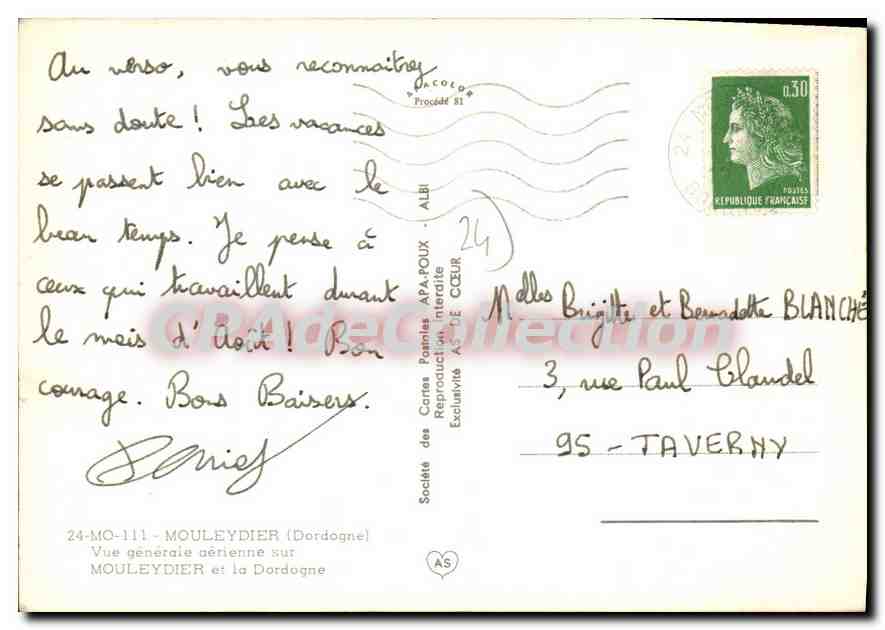 Au verso, vous reconnaitrez
sans doute ! Les vacances
se passent bien avec le
beau temps. Je pense à
ceux qui travaillent durant
le mois d'Août ! Bon
courage. Bons Baisers.
24-MO-111 - MOULEYDIER (Dordogne)
Vue générale aérienne sur
MOULEYDIER et la Dordogne
APACOLOR
Procédé 81
Société des Cartes Postales APA-POUX - ALBI
Reproduction Interdite
Exclusivité AS DE CŒUR
AS
24)
0,30
POSTES
REPUBLIQUE FRANÇAISE
24
Melles Brigitte et Bernadette BLANCHÉ
3, rue Paul Claudel
95 - TAVERNY
CPAdeCollection